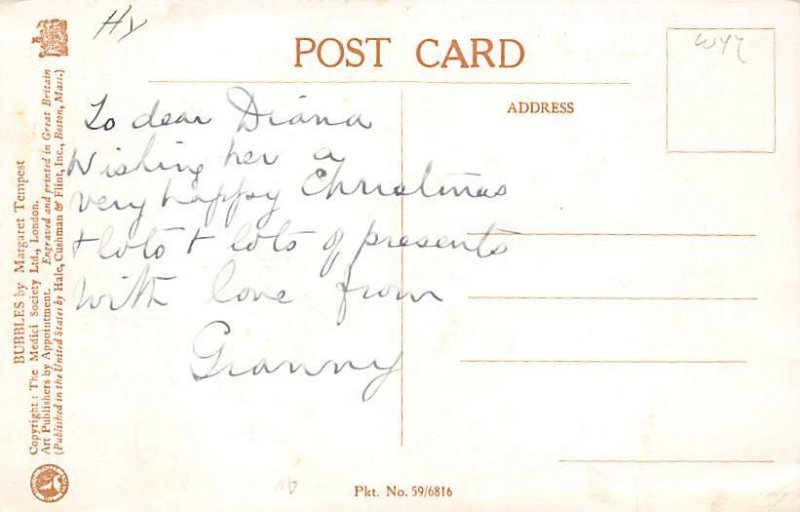 Hy
POST CARD
ADDRESS
To dear Diana
Wishing her a
very happy Christmas
+ lots + lots of presents
with love from
Granny
BUBBLES by Margaret Tempest
Copyright : The Medici Society Ltd., London.
Art Publishers by Appointment. Engraved and printed in Great Britain
(Published in the United States by Hale, Cushman & Flint, Inc., Boston, Mass.)
Pkt. No. 59/6816